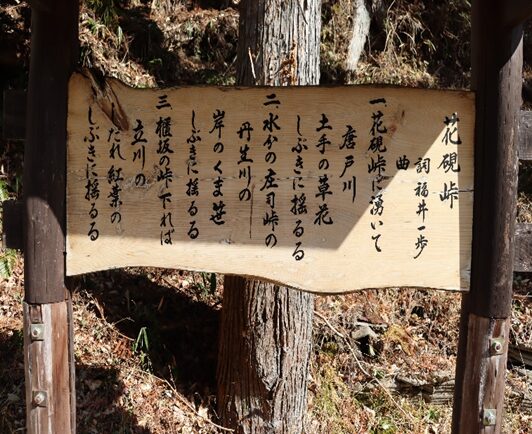 花硯峠
詞 福井一歩
曲
一 花硯峠に湧いて
唐戸川
土手の草花
しぶきに揺るる
二 水分の庄司峠の
丹生川の
岸のくま笹
しぶきに揺るる
三 櫃坂の峠下れば
立川の
だれ紅葉の
しぶきに揺るる